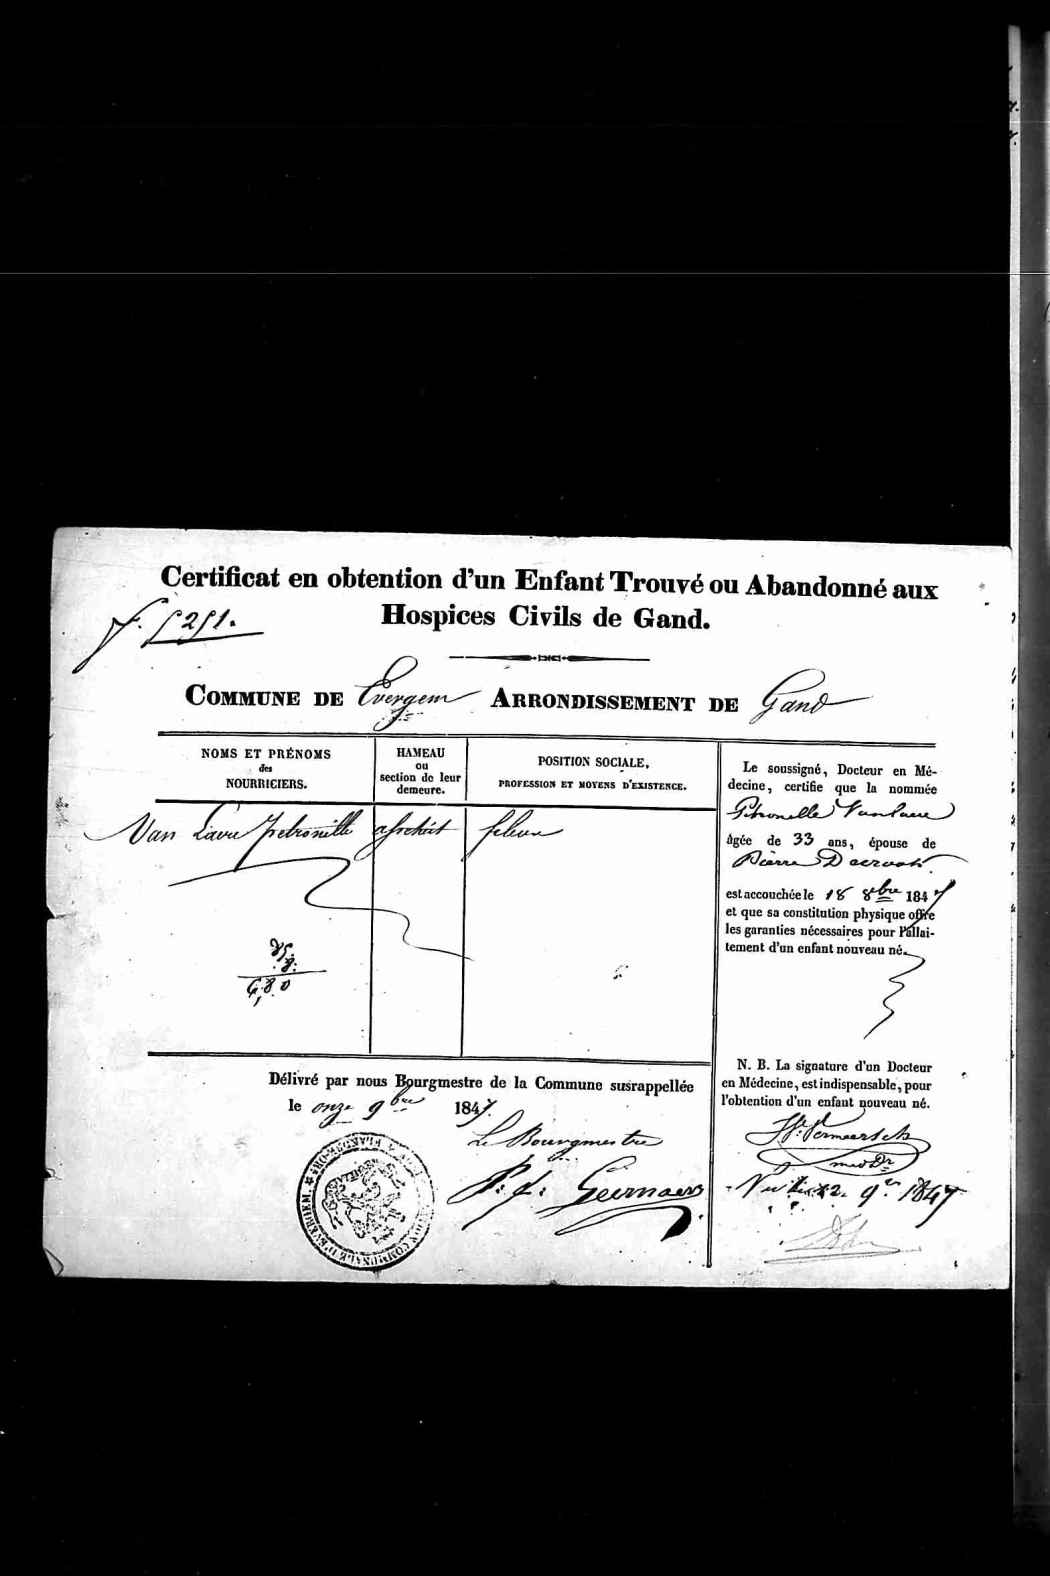 Certificat en obtention d'un Enfant Trouvé ou Abandonné aux
Hospices Civils de Gand.
f. 5251.
COMMUNE DE Evergem ARRONDISSEMENT DE Gand
NOMS ET PRÉNOMS
des
NOURRICIERS.
HAMEAU
ou
section de leur
demeure.
POSITION SOCIALE,
PROFESSION ET MOYENS D'EXISTENCE.
Van Laere Petronille
fileuse
Le soussigné, Docteur en Mé-
decine, certifie que la nommée
Petronelle Vanlaere
âgée de 33 ans, épouse de
Pierre
est accouchée le 18 8bre 1847
et que sa constitution physique offre
les garanties nécessaires pour l'allai-
tement d'un enfant nouveau né.
N. B. La signature d'un Docteur
en Médecine, est indispensable, pour
l'obtention d'un enfant nouveau né.
Vermeersch
med Dr
Vu le 12 9re 1847
Délivré par nous Bourgmestre de la Commune susrappellée
le onze 9bre 1847.
Le Bourgmestre
P. f. Geernaert